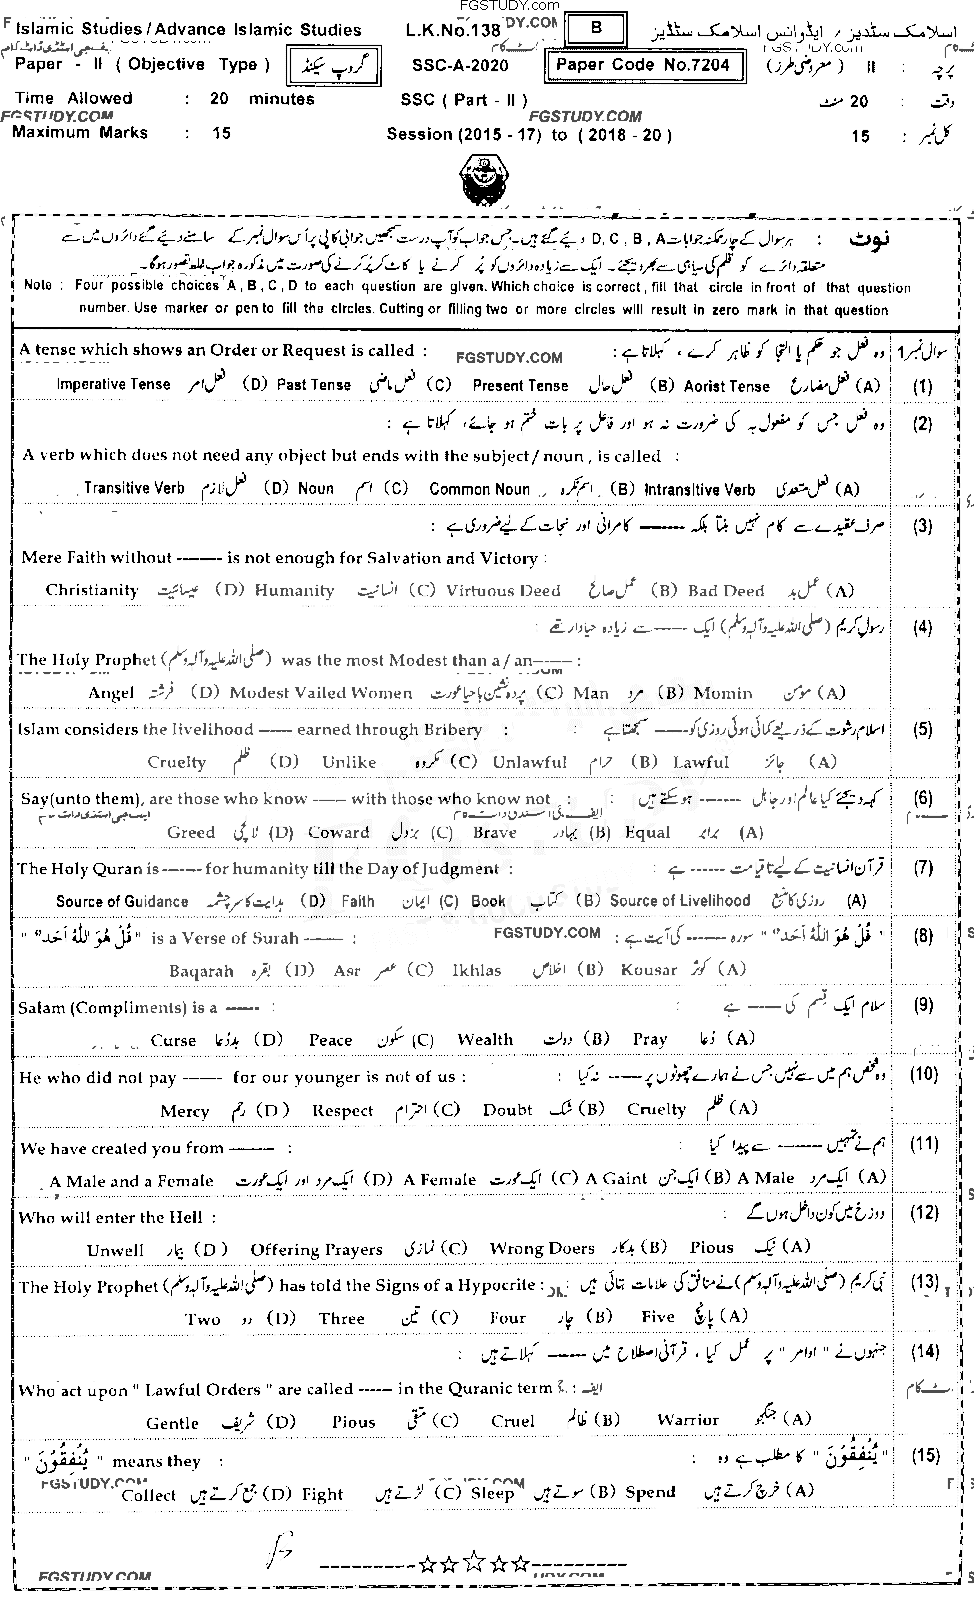 FGSTUDY.com
Islamic Studies / Advance Islamic Studies L.K.No.138 B اسلامک سٹڈیز / ایڈوانس اسلامک سٹڈیز
Paper - II ( Objective Type ) گروپ سیکنڈ SSC-A-2020 Paper Code No.7204 پرچہ : II ( معروضی طرز )
Time Allowed : 20 minutes SSC ( Part - II ) وقت : 20 منٹ
FGSTUDY.COM FGSTUDY.COM
Maximum Marks : 15 Session (2015 - 17) to ( 2018 - 20 ) کل نمبر : 15
نوٹ : ہر سوال کے چار ممکنہ جوابات D, C, B, A دیئے گئے ہیں۔ جس جواب کو آپ درست سمجھیں جوابی کاپی پر اُس سوال نمبر کے سامنے دیئے گئے دائروں میں سے
متعلقہ دائرے کو قلم کی سیاہی سے بھر دیجئے۔ ایک سے زیادہ دائروں کو پُر کرنے یا کاٹ کر پُر کرنے کی صورت میں مذکورہ جواب غلط تصور ہوگا۔
Note : Four possible choices A, B, C, D to each question are given. Which choice is correct, fill that circle in front of that question
number. Use marker or pen to fill the circles. Cutting or filling two or more circles will result in zero mark in that question
A tense which shows an Order or Request is called : FGSTUDY.COM وہ فعل جو حکم یا التجا کو ظاہر کرے ، کہلاتا ہے : سوال نمبر 1
Imperative Tense فعل امر (D) Past Tense فعل ماضی (C) Present Tense فعل حال (B) Aorist Tense فعل مضارع (A) (1)
وہ فعل جس کو مفعول بہ کی ضرورت نہ ہو اور فاعل پر بات ختم ہو جائے، کہلاتا ہے : (2)
A verb which does not need any object but ends with the subject / noun , is called :
Transitive Verb فعل لازم (D) Noun اسم (C) Common Noun اسم نکرہ (B) Intransitive Verb فعل متعدی (A)
صرف عقیدے سے کام نہیں بنتا بلکہ ------- کامرانی اور نجات کے لیے ضروری ہے : (3)
Mere Faith without ------- is not enough for Salvation and Victory :
Christianity عیسائیت (D) Humanity انسانیت (C) Virtuous Deed عمل صالح (B) Bad Deed عمل بد (A)
رسول کریم (صلی اللہ علیہ وآلہ وسلم) ایک ----- سے زیادہ حیادار تھے : (4)
The Holy Prophet (صلی اللہ علیہ وآلہ وسلم) was the most Modest than a / an----- :
Angel فرشتہ (D) Modest Vailed Women پردہ نشین باحیا عورت (C) Man مرد (B) Momin مومن (A)
Islam considers the livelihood ----- earned through Bribery : اسلام رشوت کے ذریعے کمائی ہوئی روزی کو ----- سمجھتا ہے : (5)
Cruelty ظلم (D) Unlike مکروہ (C) Unlawful حرام (B) Lawful جائز (A)
Say(unto them), are those who know ----- with those who know not : کہہ دیجئے کیا عالم اور جاہل ------ ہو سکتے ہیں : (6)
Greed لالچی (D) Coward بزدل (C) Brave بہادر (B) Equal برابر (A)
The Holy Quran is ------ for humanity till the Day of Judgment : قرآن انسانیت کے لیے تا قیامت ------ ہے : (7)
Source of Guidance ہدایت کا سرچشمہ (D) Faith ایمان (C) Book کتاب (B) Source of Livelihood روزی کا منبع (A)
" قُلْ هُوَ اللّٰهُ اَحَد " is a Verse of Surah ----- : FGSTUDY.COM " قُلْ هُوَ اللّٰهُ اَحَد " سورہ ------ کی آیت ہے : (8)
Baqarah بقرہ (D) Asr عصر (C) Ikhlas اخلاص (B) Kousar کوثر (A)
Salam (Compliments) is a ----- : سلام ایک قسم کی ----- ہے : (9)
Curse بددُعا (D) Peace سکون (C) Wealth دولت (B) Pray دُعا (A)
He who did not pay ------ for our younger is not of us : وہ شخص ہم میں سے نہیں جس نے ہمارے چھوٹوں پر ----- نہ کیا : (10)
Mercy رحم (D) Respect احترام (C) Doubt شک (B) Cruelty ظلم (A)
We have created you from ------ : ہم نے تمہیں ------ سے پیدا کیا : (11)
A Male and a Female ایک مرد اور ایک عورت (D) A Female ایک عورت (C) A Gaint ایک جن (B) A Male ایک مرد (A)
Who will enter the Hell : دوزخ میں کون داخل ہوں گے : (12)
Unwell بیمار (D) Offering Prayers نمازی (C) Wrong Doers بدکار (B) Pious نیک (A)
The Holy Prophet (صلی اللہ علیہ وآلہ وسلم) has told the Signs of a Hypocrite : نبی کریم (صلی اللہ علیہ وآلہ وسلم) نے منافق کی علامات بتائی ہیں : (13)
Two دو (D) Three تین (C) Four چار (B) Five پانچ (A)
جنہوں نے " اوامر " پر عمل کیا ، قرآنی اصطلاح میں ------ کہلاتے ہیں : (14)
Who act upon " Lawful Orders " are called ----- in the Quranic term :
Gentle شریف (D) Pious متقی (C) Cruel ظالم (B) Warrior جنگجو (A)
" يُنْفِقُوْنَ " means they : " يُنْفِقُوْنَ " کا مطلب ہے وہ : (15)
Collect جمع کرتے ہیں (D) Fight لڑتے ہیں (C) Sleep سوتے ہیں (B) Spend خرچ کرتے ہیں (A)
FGSTUDY.COM